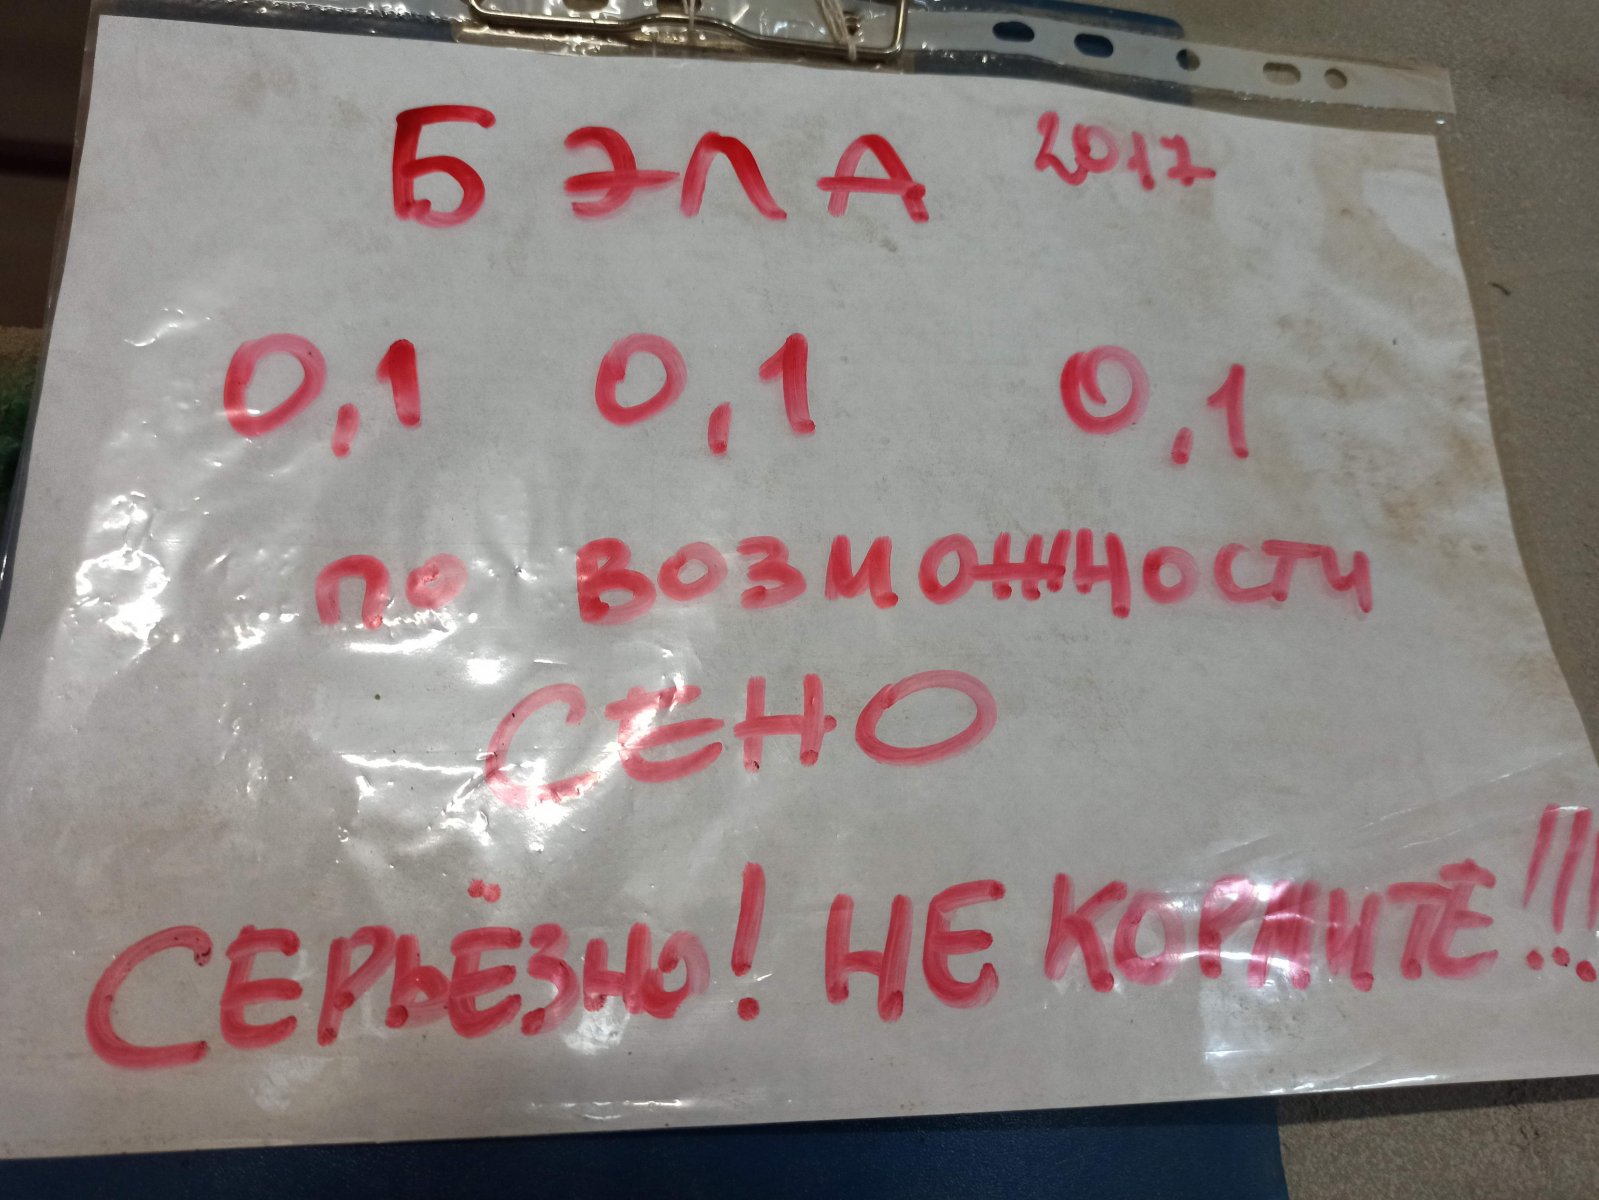 БЭЛА 2017
0,1 0,1 0,1
по возможности
СЕНО
СЕРЬЁЗНО! НЕ КОРМИТЕ!!!